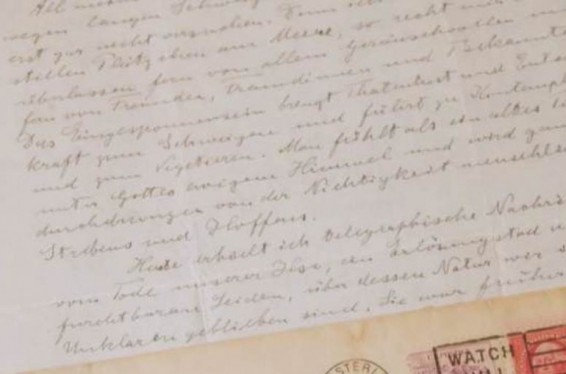 All mein
wegen langen Schweig
erst gar nicht
stellen Plätzchen am Meere, so recht mir
überlassen fern von allem geräuschvollen
fern von Freunden, Freundinnen und Bekannten
Das Eingesponnensein bringt Thatenlust und
kraft zum Schweigen und führt zu Kontempl
und zum Vegetieren. Man fühlt als ein altes
unter Gottes ewigem Himmel und wird gan
durchdrungen von der Nichtigkeit menschli
Strebens und Hoffens.
Heute erhielt ich telegraphische Nachri
vom Tode unserer Ilse, ein Erlösungstod
furchtbaren Leiden, über dessen Natur wer
Unklaren geblieben sind. Sie war früher
STERL
WATCH